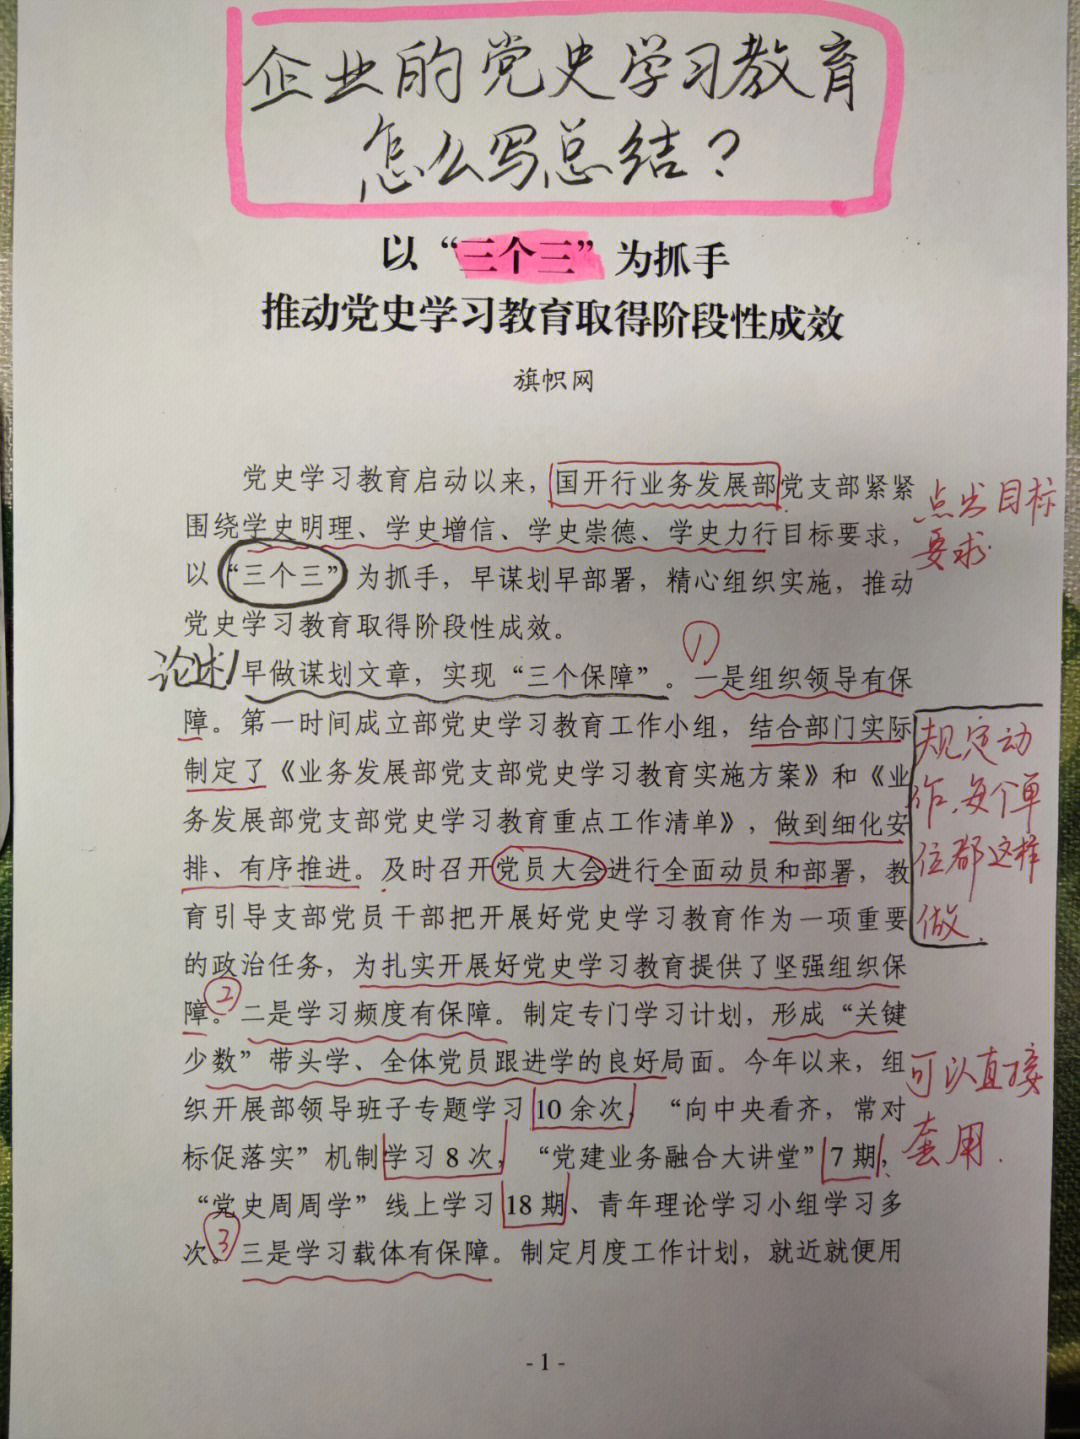 企业的党史学习教育
怎么写总结？
以“三个三”为抓手
推动党史学习教育取得阶段性成效
旗帜网
党史学习教育启动以来，国开行业务发展部党支部紧紧
围绕学史明理、学史增信、学史崇德、学史力行目标要求，
以“三个三”为抓手，早谋划早部署，精心组织实施，推动
党史学习教育取得阶段性成效。
点出目标
要求
论述1
早做谋划文章，实现“三个保障”。一是组织领导有保
障。第一时间成立部党史学习教育工作小组，结合部门实际
制定了《业务发展部党支部党史学习教育实施方案》和《业
务发展部党支部党史学习教育重点工作清单》，做到细化安
排、有序推进。及时召开党员大会进行全面动员和部署，教
育引导支部党员干部把开展好党史学习教育作为一项重要
的政治任务，为扎实开展好党史学习教育提供了坚强组织保
障。二是学习频度有保障。制定专门学习计划，形成“关键
少数”带头学、全体党员跟进学的良好局面。今年以来，组
织开展部领导班子专题学习10余次，“向中央看齐，常对
标促落实”机制学习8次，“党建业务融合大讲堂”7期，
“党史周周学”线上学习18期、青年理论学习小组学习多
次。三是学习载体有保障。制定月度工作计划，就近就便用
1
2
3
规定动
作，每个单
位都这样
做.
可以直接
套用.
- 1 -